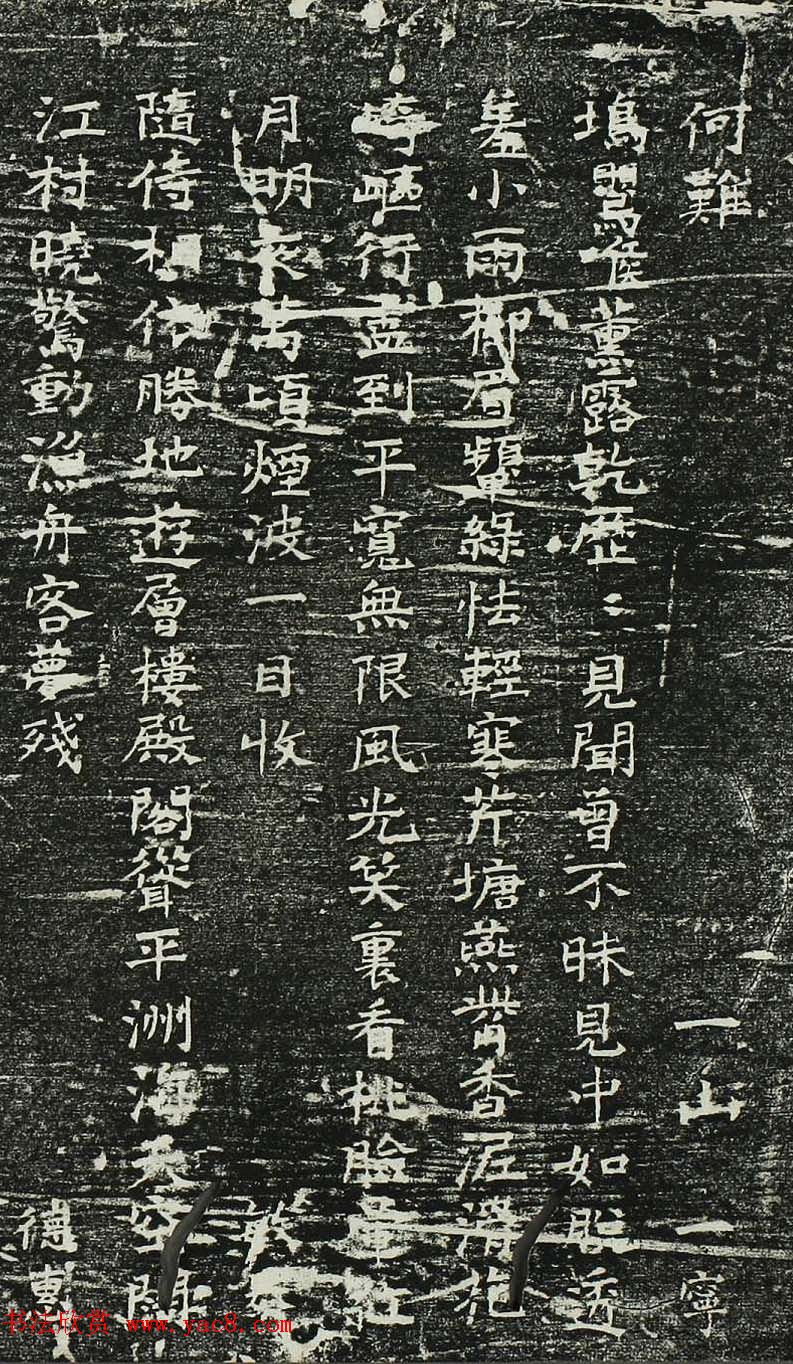 何難 一山一寧
塢鸎催薰露乾歷〻見聞曾不昧見中如脫透
羞小雨柳眉顰綠怯輕寒芹塘燕觜香泥滑
崎嶇行盡到平寬無限風光笑裏看桃臉暈紅
月明夜萬頃煙波一目收
隨侍相依勝地遊層樓殿閣聳平洲海天空
江村曉驚動漁舟客夢殘 德
书法欣赏 www.yac8.com